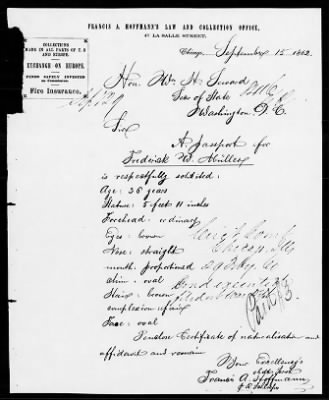 FRANCIS A. HOFFMANN'S LAW AND COLLECTION OFFICE,
47 LA SALLE STREET.
COLLECTIONS
MADE IN ALL PARTS OF U. S.
AND EUROPE.
EXCHANGE ON EUROPE.
Fire Insurance.
Chicago, September 15 1862.
Hon. Wm H. Seward
Secr of State
Washington D. C.
Sir
A Passport for
Frederick W.
is respectfully solicited:
Age: 36 years
Stature: 5 feet 11 inches
Forehead: ordinary
Eyes: brown
Nose: straight
mouth: proportioned
chin: oval
Hair: brown
complexion:
Face: oval
Enclose Certificate of naturalisation and
affidavit and remain
Your Excellency's
Francis A. Hoffmann